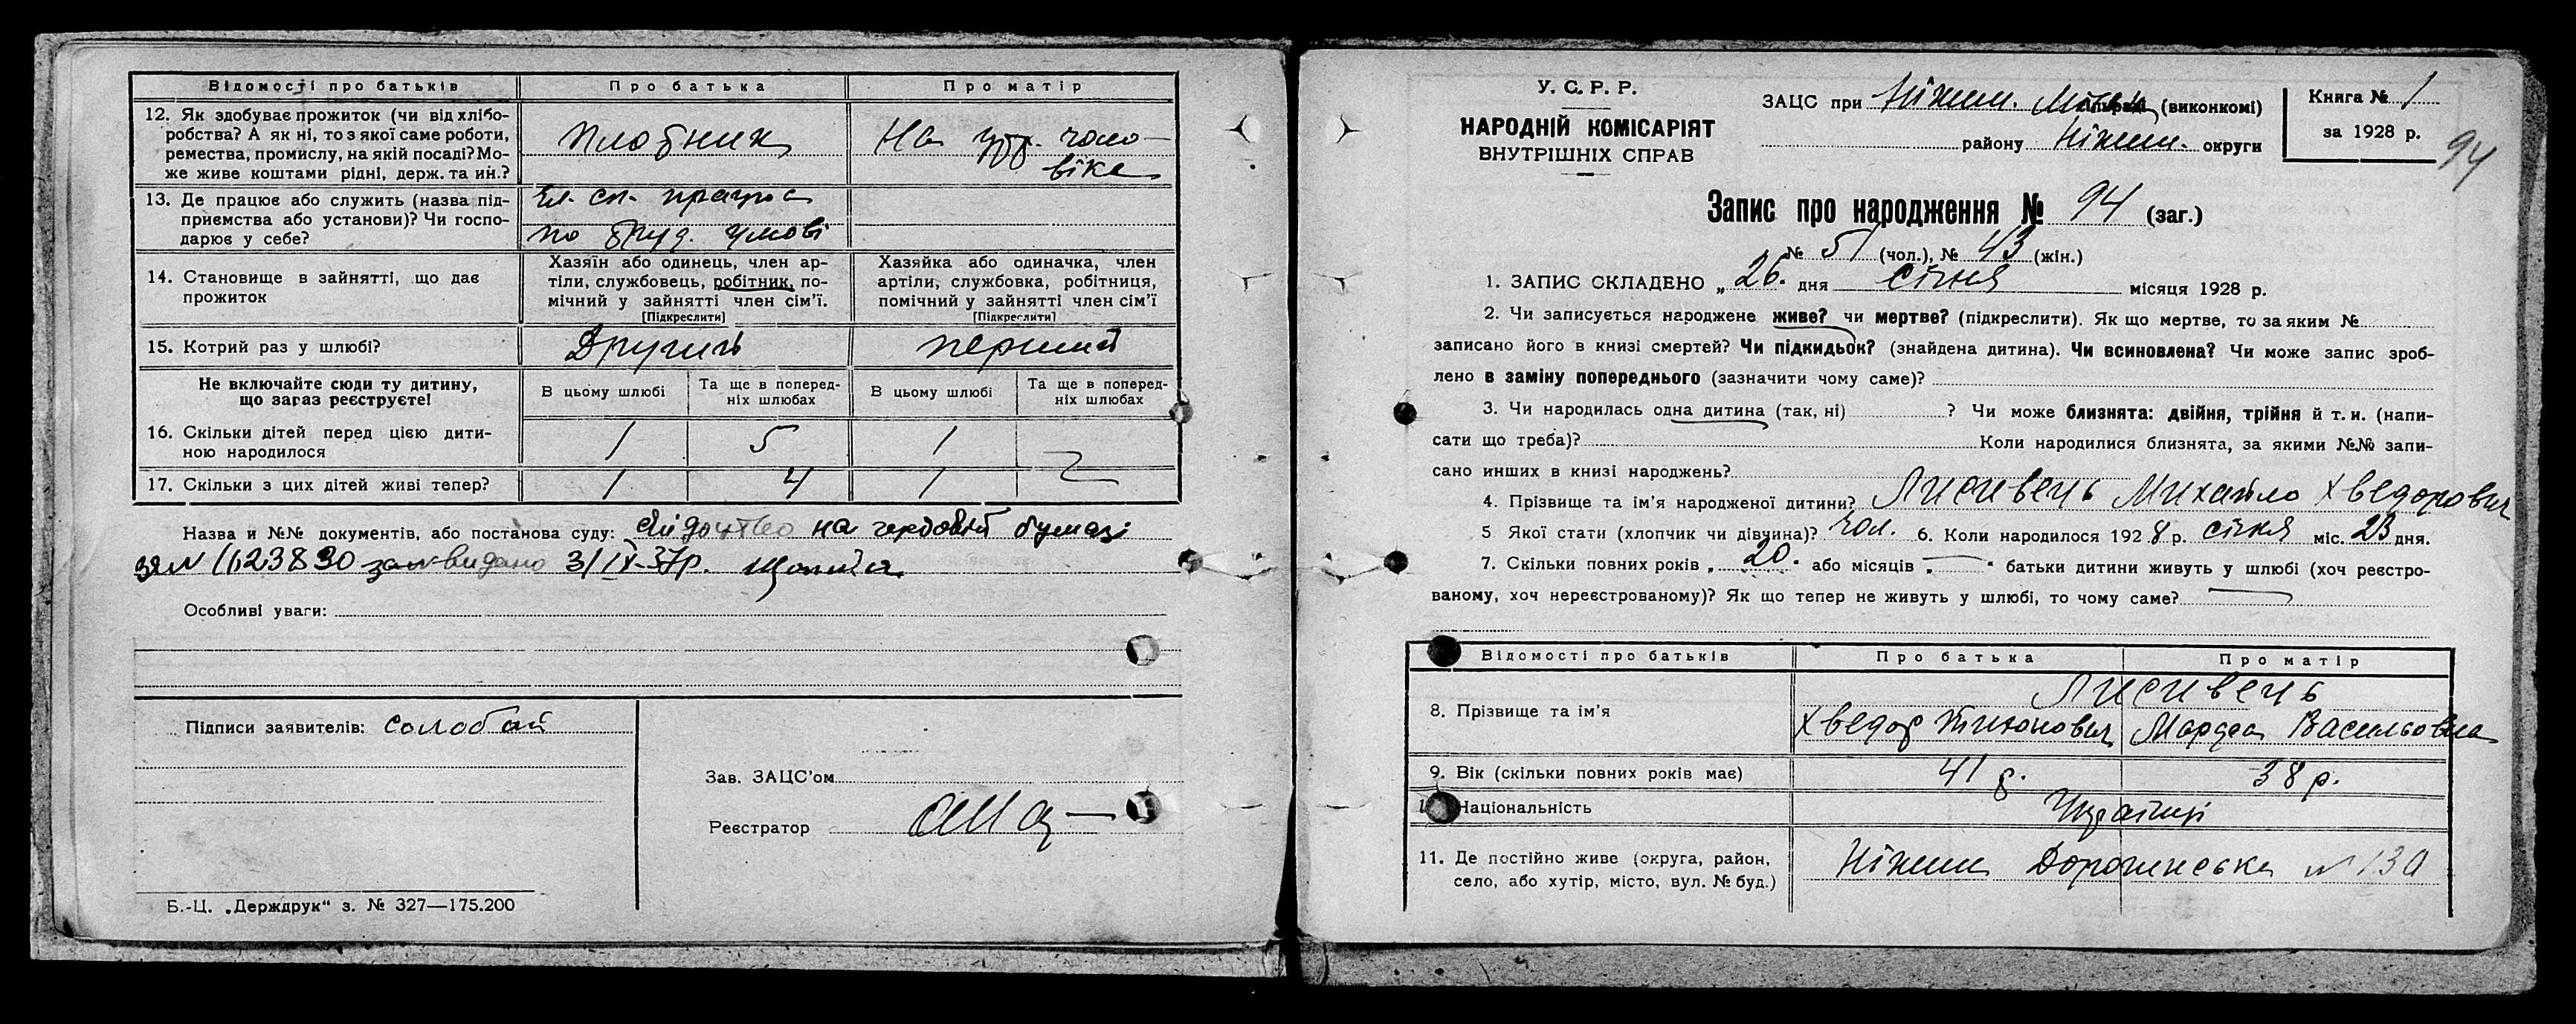 Відомості про батьків Про батька Про матір
12. Як здобуває прожиток (чи від хлібо-
робства? А як ні, то з якої саме роботи,
ремества, промислу, на якій посаді? Мо-
же живе коштами рідні, держ. та ин.?
Плотник
На утр. чоло-
віка
13. Де працює або служить (назва під-
приємства або установи)? Чи госпо-
дарює у себе?
чл. сп. працює
по труд. умові
14. Становище в зайнятті, що дає
прожиток
Хазяїн або одинець, член ар-
тіли, службовець, робітник, по-
мічний у зайнятті член сім’ї.
[Підкреслити]
Хазяйка або одиначка, член
артіли, службовка, робітниця,
помічний у зайнятті член сім’ї
[Підкреслити]
15. Котрий раз у шлюбі? Другий перший
Не включайте сюди ту дитину,
що зараз реєструєте!
В цьому шлюбі
Та ще в поперед-
ніх шлюбах
В цьому шлюбі
Та ще в поперед-
ніх шлюбах
16. Скільки дітей перед цією дити-
ною народилося
1 5 1
17. Скільки з цих дітей живі тепер? 1 4 1
Назва и №№ документів, або постанова суду: на гербовій бумазі
видано 3/IX-37р.
Особливі уваги:
Підписи заявителів: Солобай
Зав. ЗАЦС’ом
Реєстратор
Б.-Ц. „Держдрук“ з. № 327—175.200
У. С. Р. Р.
НАРОДНІЙ КОМІСАРІЯТ
ВНУТРІШНІХ СПРАВ
ЗАЦС при Ніжин. (виконкомі)
району Ніжин. округи
Книга № 1
за 1928 р.
94
Запис про народження № 94 (заг.)
№ 51 (чол.), № 43 (жін.)
1. ЗАПИС СКЛАДЕНО „26. дня січня місяця 1928 р.
2. Чи записується народжене живе? чи мертве? (підкреслити). Як що мертве, то за яким №
записано його в книзі смертей? Чи підкидьок? (знайдена дитина). Чи всиновлена? Чи може запис зроб-
лено в заміну попереднього (зазначити чому саме)?
3. Чи народилась одна дитина (так, ні) ? Чи може близнята: двійня, трійня й т. и. (напи-
сати що треба)? Коли народилися близнята, за якими №№ запи-
сано инших в книзі народжень?
4. Прізвище та ім’я народженої дитини? Лисивець Михайло Хведорович
5 Якої стати (хлопчик чи дівчина)? чол. 6. Коли народилося 1928 р. січня міс. 23 дня.
7. Скільки повних років „ 20. або місяців „ — “ батьки дитини живуть у шлюбі (хоч реєстро-
ваному, хоч нереєстрованому)? Як що тепер не живуть у шлюбі, то чому саме?
Відомості про батьків Про батька Про матір
8. Прізвище та ім’я
Лисивець
Хведор Тихонович Марфа Васильовна
9. Вік (скільки повних років має) 41 р. 38 р.
Національність Українці
11. Де постійно живе (округа, район,
село, або хутір, місто, вул. № буд.)
Ніжин